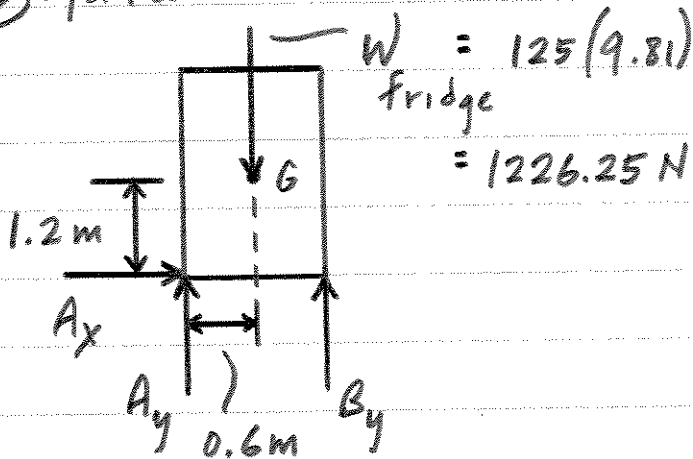 W fridge = 125(9.81)
= 1226.25 N
G
1.2 m
A_x
A_y
B_y
0.6m